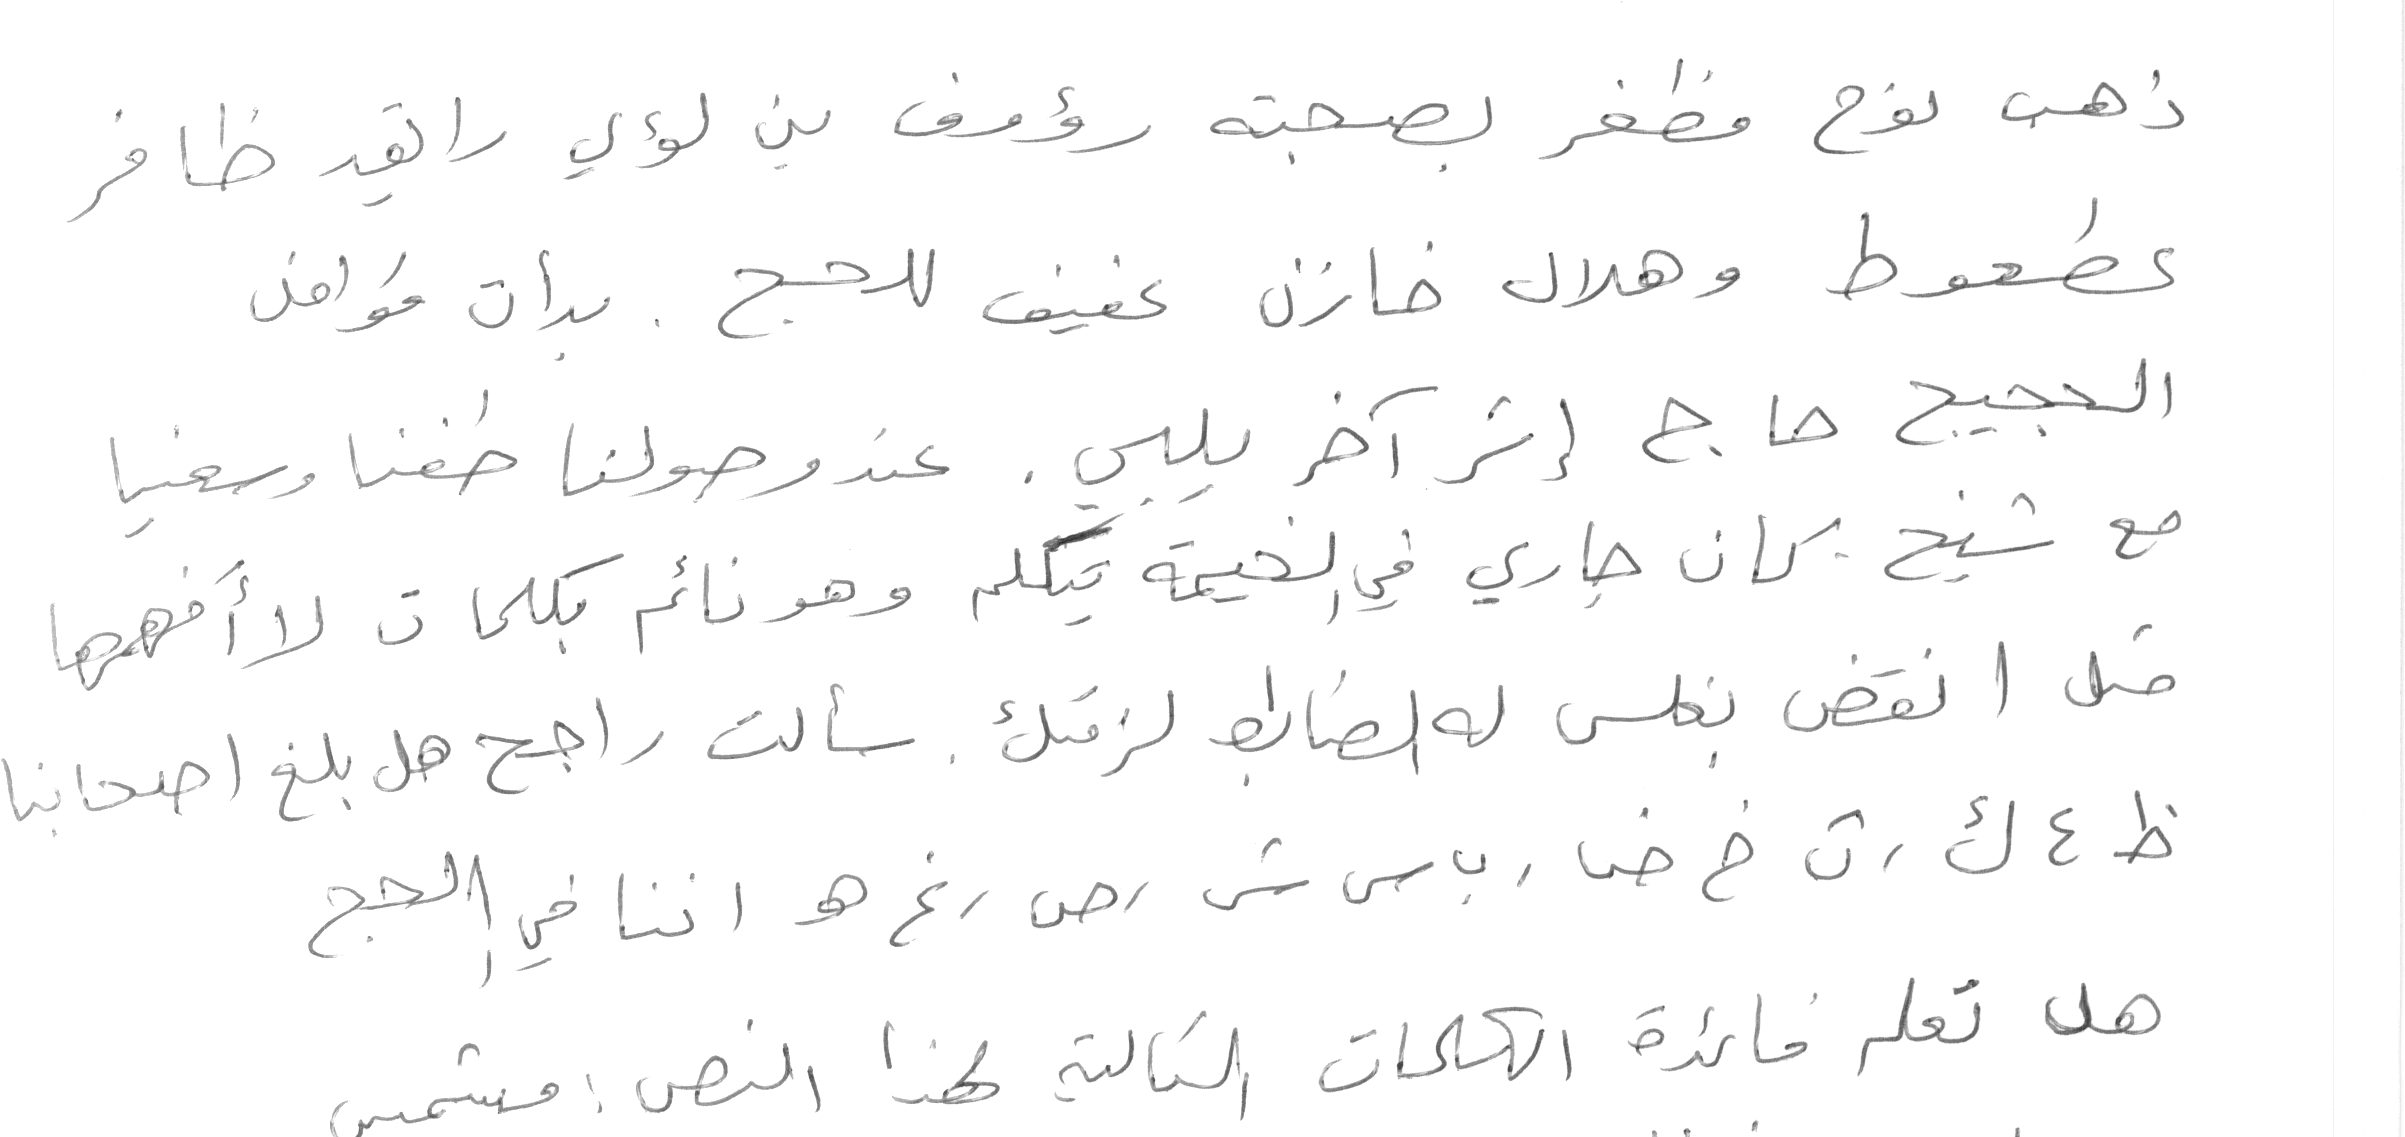 ذهب نوح مظفر بصحبته رؤوف بن لؤي رائقيد ظافر
عطعوط وهلال خازن عفيف للحج . بدأت قوافل
الحجيج حاج إثر آخر يلبي . عند وصولنا طفنا وسعينا
مع شيخ . كان جاري في الخيمة يتكلم وهو نائم بكلمات لا أفهمها
مثل انقض بغلس له الضابط لزقتك . سألت راجح هل بلغ اصحابنا
ظ ع ك ، ث خ ض ، ب س ش ، ص ، غ ه اننا في الحج
هل تعلم فائدة الكلمات التالية لهذا النص : مشمس